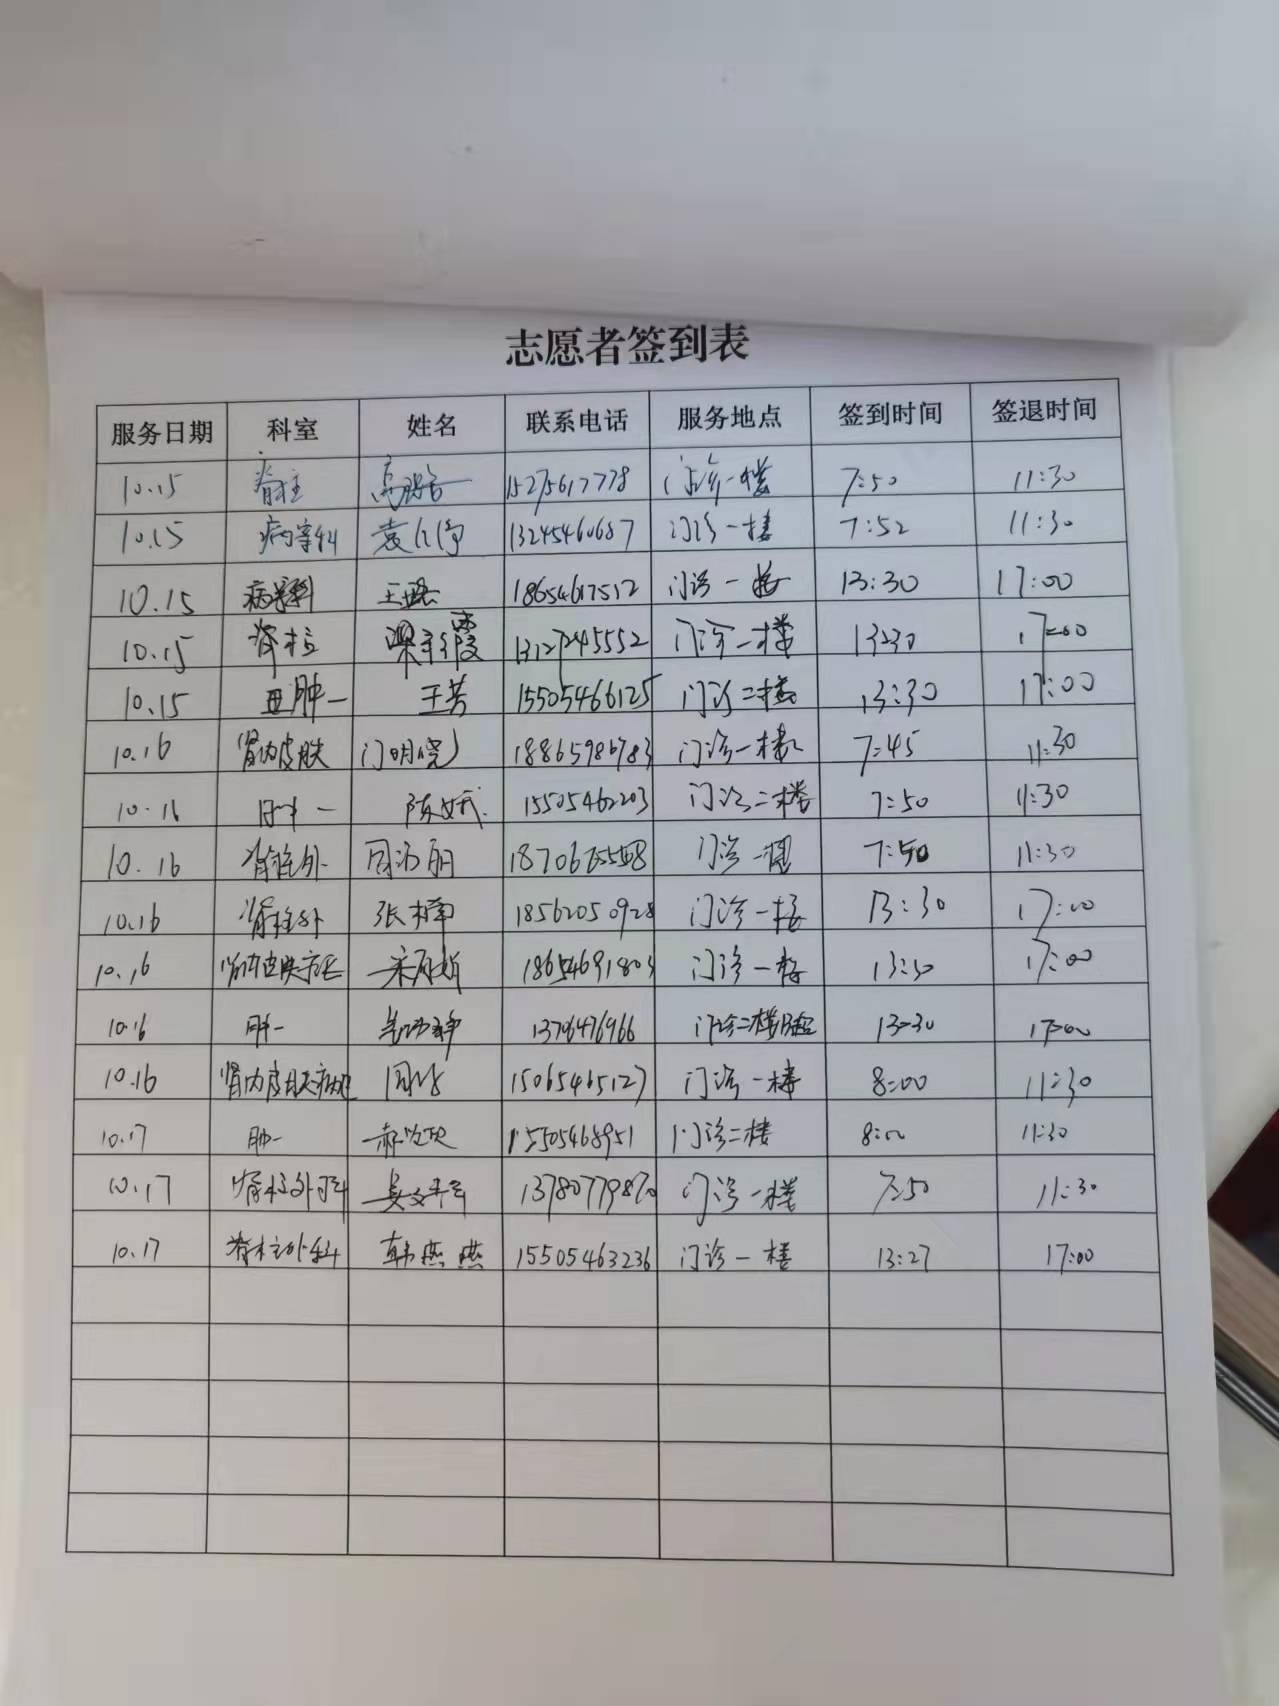 志愿者签到表
服务日期 科室 姓名 联系电话 服务地点 签到时间 签退时间
10.15 脊柱 15275617778 门诊一楼 7:50 11:30
10.15 病案科 13245460687 门诊一楼 7:52 11:30
10.15 病案科 18654617512 门诊一楼 13:30 17:00
10.15 脊柱 13127245552 门诊一楼 13:30 17:00
10.15 肿一 王芳 15505466125 门诊二楼 13:30 17:00
10.16 肾内皮肤 门明亮 门诊一楼 7:45 11:30
10.16 肿一 15505462203 门诊二楼 7:50 11:30
10.16 脊柱外 门诊一楼 7:50 11:30
10.16 脊柱外 张楠 18562050928 门诊一楼 13:30 17:00
10.16 18654691803 门诊一楼 13:30 17:00
10.16 肿一 13706476966 门诊二楼 13:30 17:00
10.16 肾内皮肤 周 15065465127 门诊一楼 8:00 11:30
10.17 肿一 15505468951 门诊二楼 8:00 11:30
10.17 脊柱外科 13780779870 门诊一楼 7:50 11:30
10.17 脊柱外科 韩燕燕 15505463236 门诊一楼 13:27 17:00